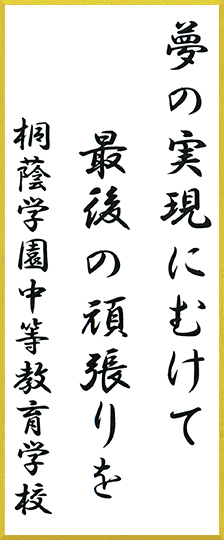 夢の実現にむけて
最後の頑張りを
桐蔭学園中等教育学校